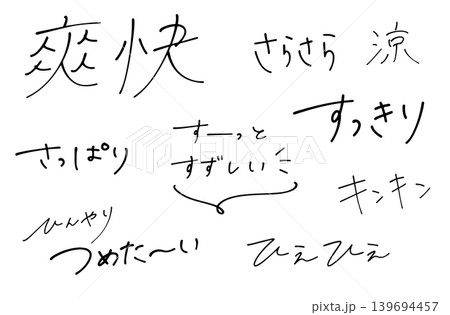 爽快
さらさら 涼
すっきり
さっぱり
すーっと
すずしい
キンキン
ひんやり
つめた〜い
ひえひえ
PIXTA
pixta.jp - 139694457